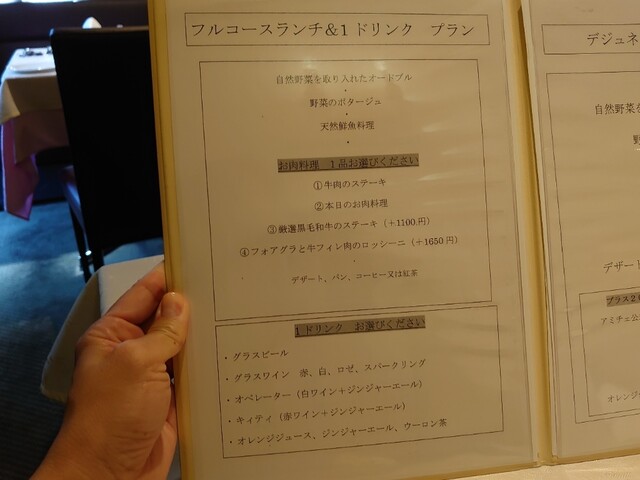 フルコースランチ&1ドリンク プラン
自然野菜を取り入れたオードブル
・
野菜のポタージュ
・
天然鮮魚料理
・
お肉料理 1品お選びください
①牛肉のステーキ
②本日のお肉料理
③厳選黒毛和牛のステーキ(+1100.円)
④フォアグラと牛フィレ肉のロッシーニ(+1650円)
・
デザート、パン、コーヒー又は紅茶
1ドリンク お選びください
・グラスビール
・グラスワイン 赤、白、ロゼ、スパークリング
・オペレーター(白ワイン+ジンジャーエール)
・キィティ(赤ワイン+ジンジャーエール)
・オレンジジュース、ジンジャーエール、ウーロン茶
デジュネ
自然野菜を
デザート
プラス2
アミチェ公
オレンジ